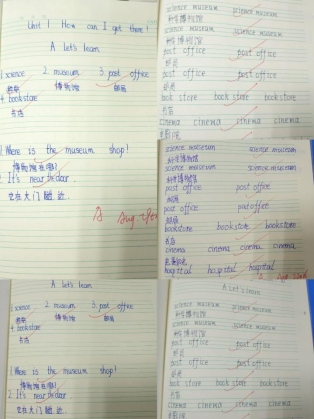 Unit 1 How can I get there!
A Let's learn
1. science 2. museum 3. post office
博物馆 邮局
4. bookstore
书店
1. Where is the museum shop!
博物馆在哪!
2. It's near the door.
它在大门附近.
science museum science museum
科学博物馆
post office post office
邮局
post office post office
邮局
book store book store book store
书店
cinema cinema cinema
science museum science museum
科学博物馆
science museum science museum
科学博物馆
post office post office
邮局
post office post office
邮局
bookstore bookstore bookstore
书店
cinema cinema cinema cinema
hospital hospital hospital
A Let's learn
1. science 2. museum 3. post office
博物馆 邮局
4. bookstore
书店
1. Where is the museum shop!
博物馆在哪!
2. It's near the door.
它在大门附近.
A Let's learn
science museum science museum
科学博物馆
science museum science museum
科学博物馆
post office post office
邮局
post office post office
邮局
book store book store book store
书店
cinema cinema cinema cinema